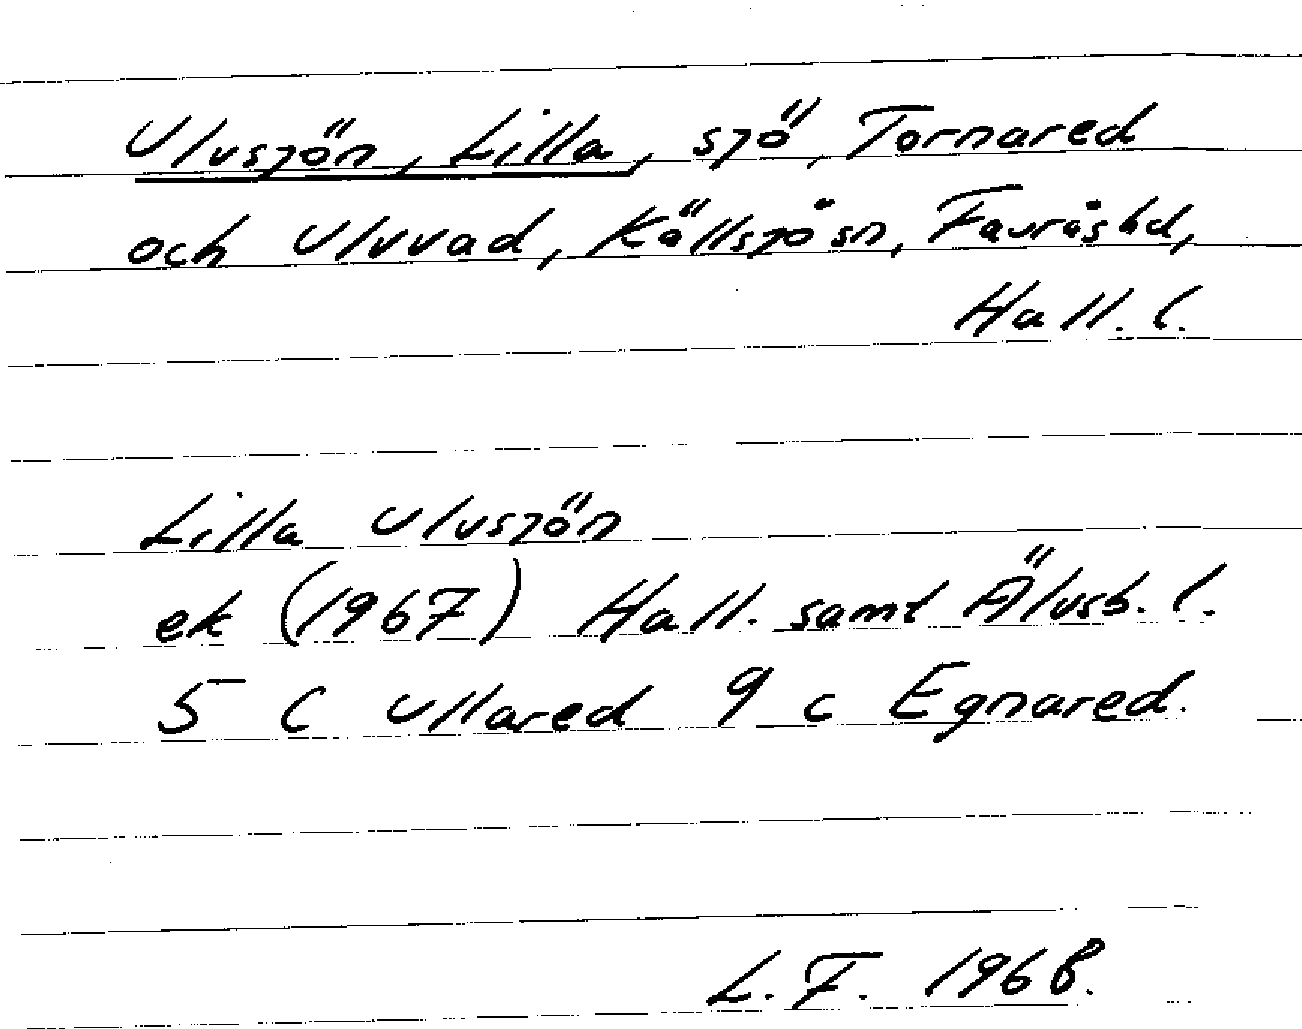 Ulvsjön, Lilla, sjö, Tornared
och Ulvvad, Källsjö sn, Fauråshd,
Hall. l.
Lilla Ulvsjön
ek (1967) Hall. samt Älvsb. l.
5 C Ullared 9 c Egnared.
L. F. 1968.